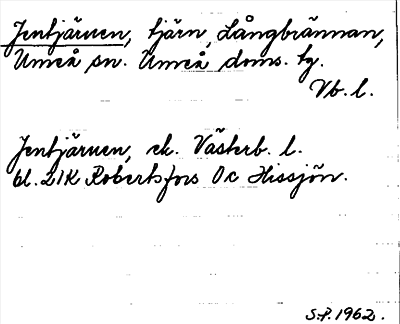 Jentjärnen, tjärn, Långbrännan,
Umeå sn. Umeå doms. tg.
Vb. l.
Jentjärnen, ek. Västerb. l.
bl. 21K Robertsfors 0c Hissjön.
S.P. 1962.